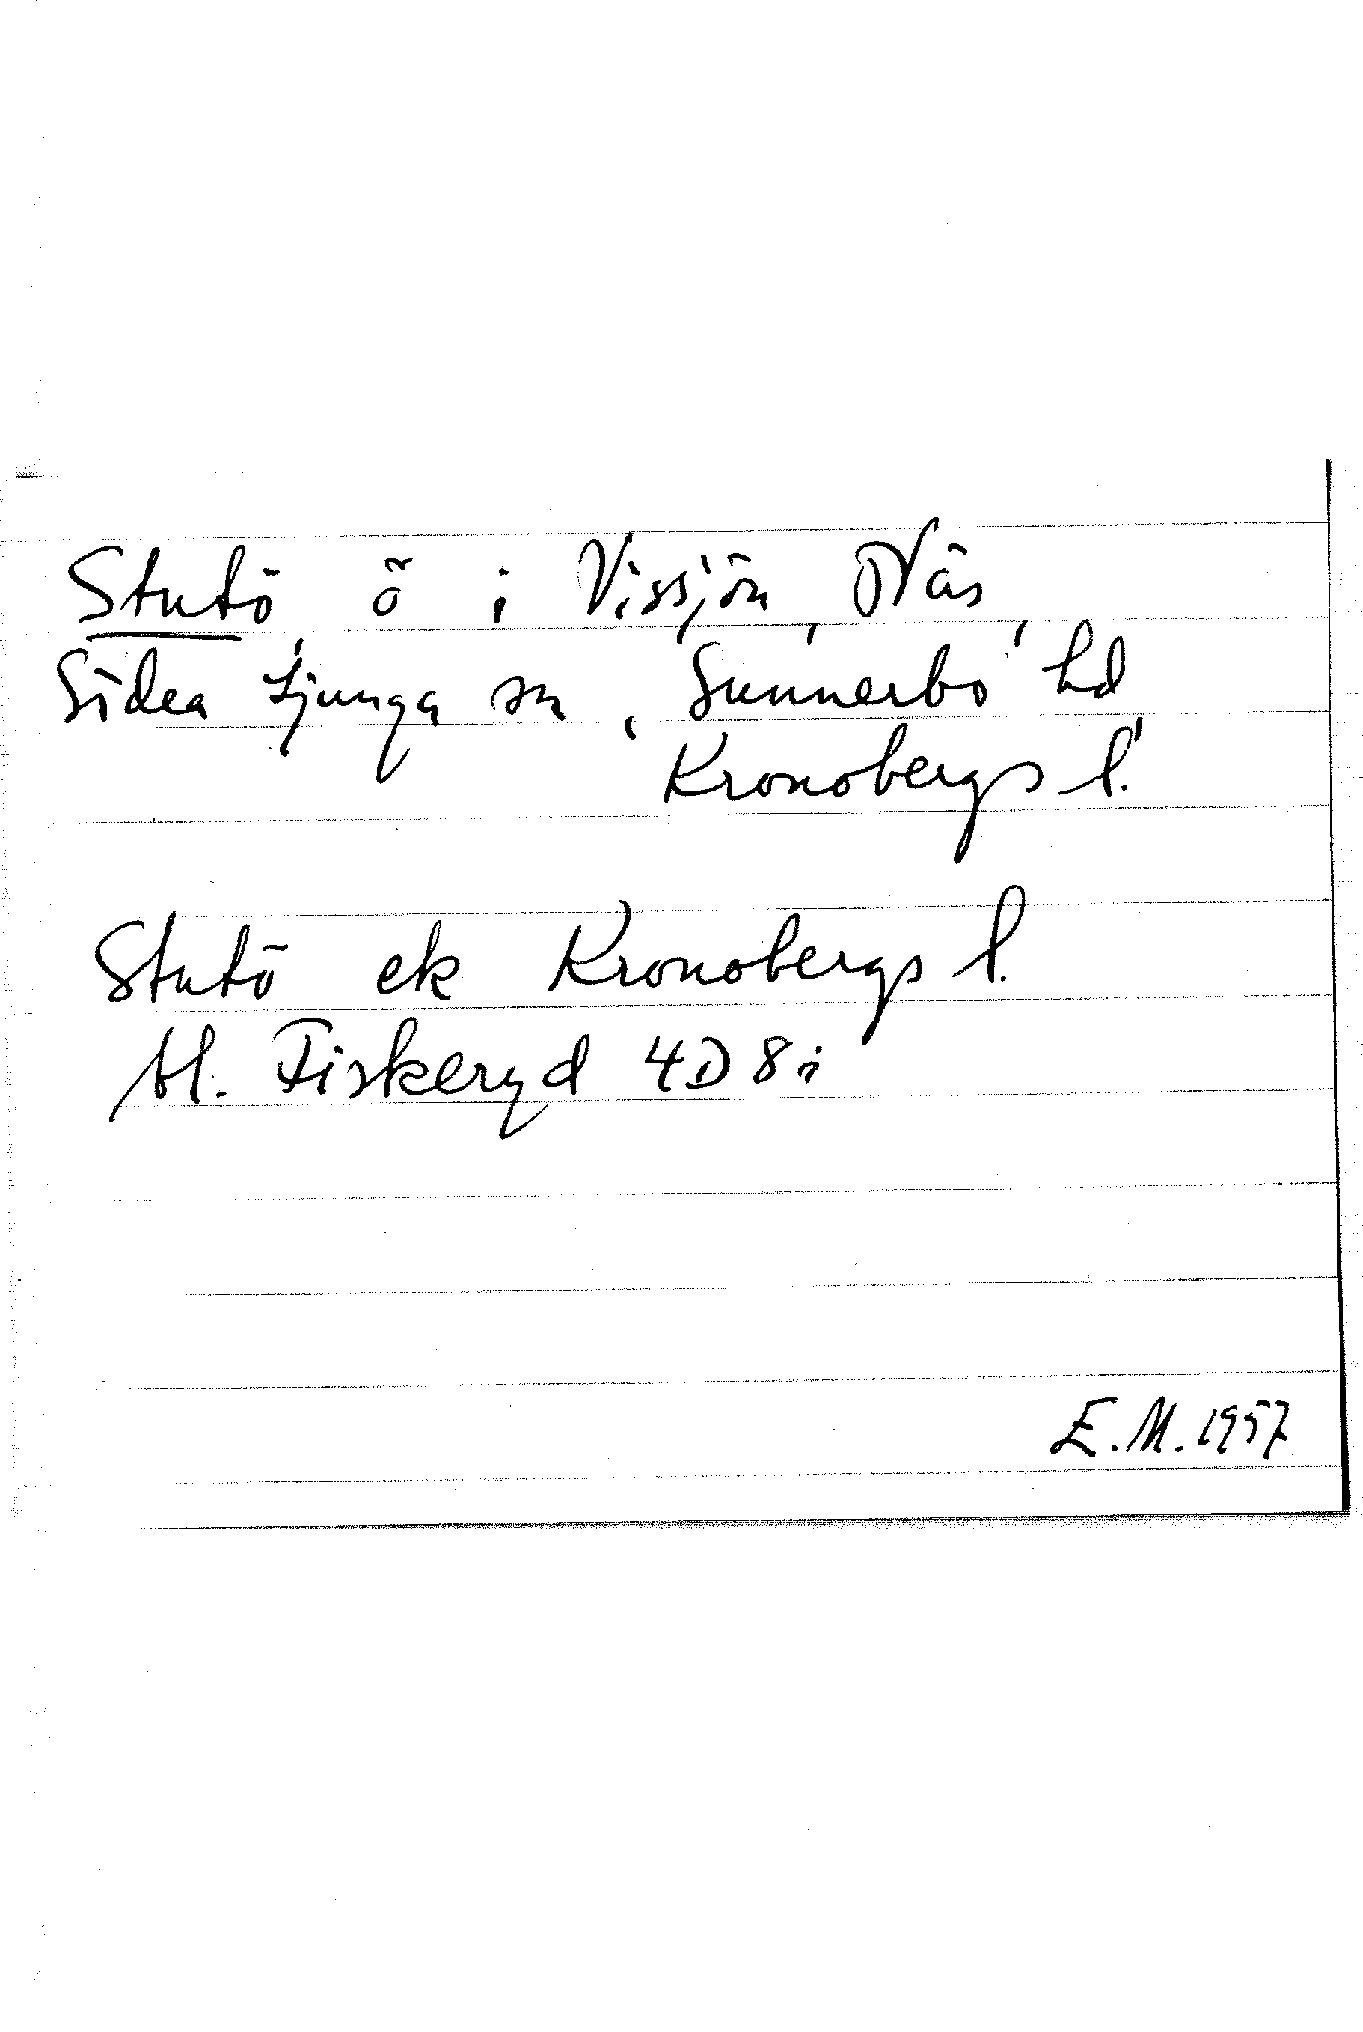 Stutö, ö i Vissjön, Näs,
Södra Ljunga sn, Sunnerbo hd,
Kronobergs l.
Stutö ek Kronobergs l.
bl. Fiskeryd 4D8i
E.M. 1957